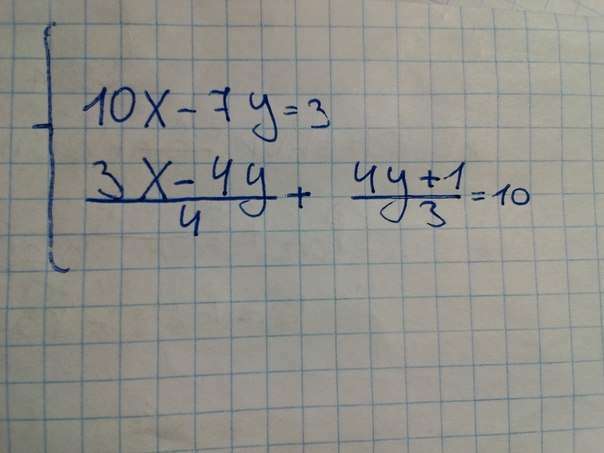 10x - 7y = 3
\frac{3x - 4y}{4} + \frac{4y + 1}{3} = 10